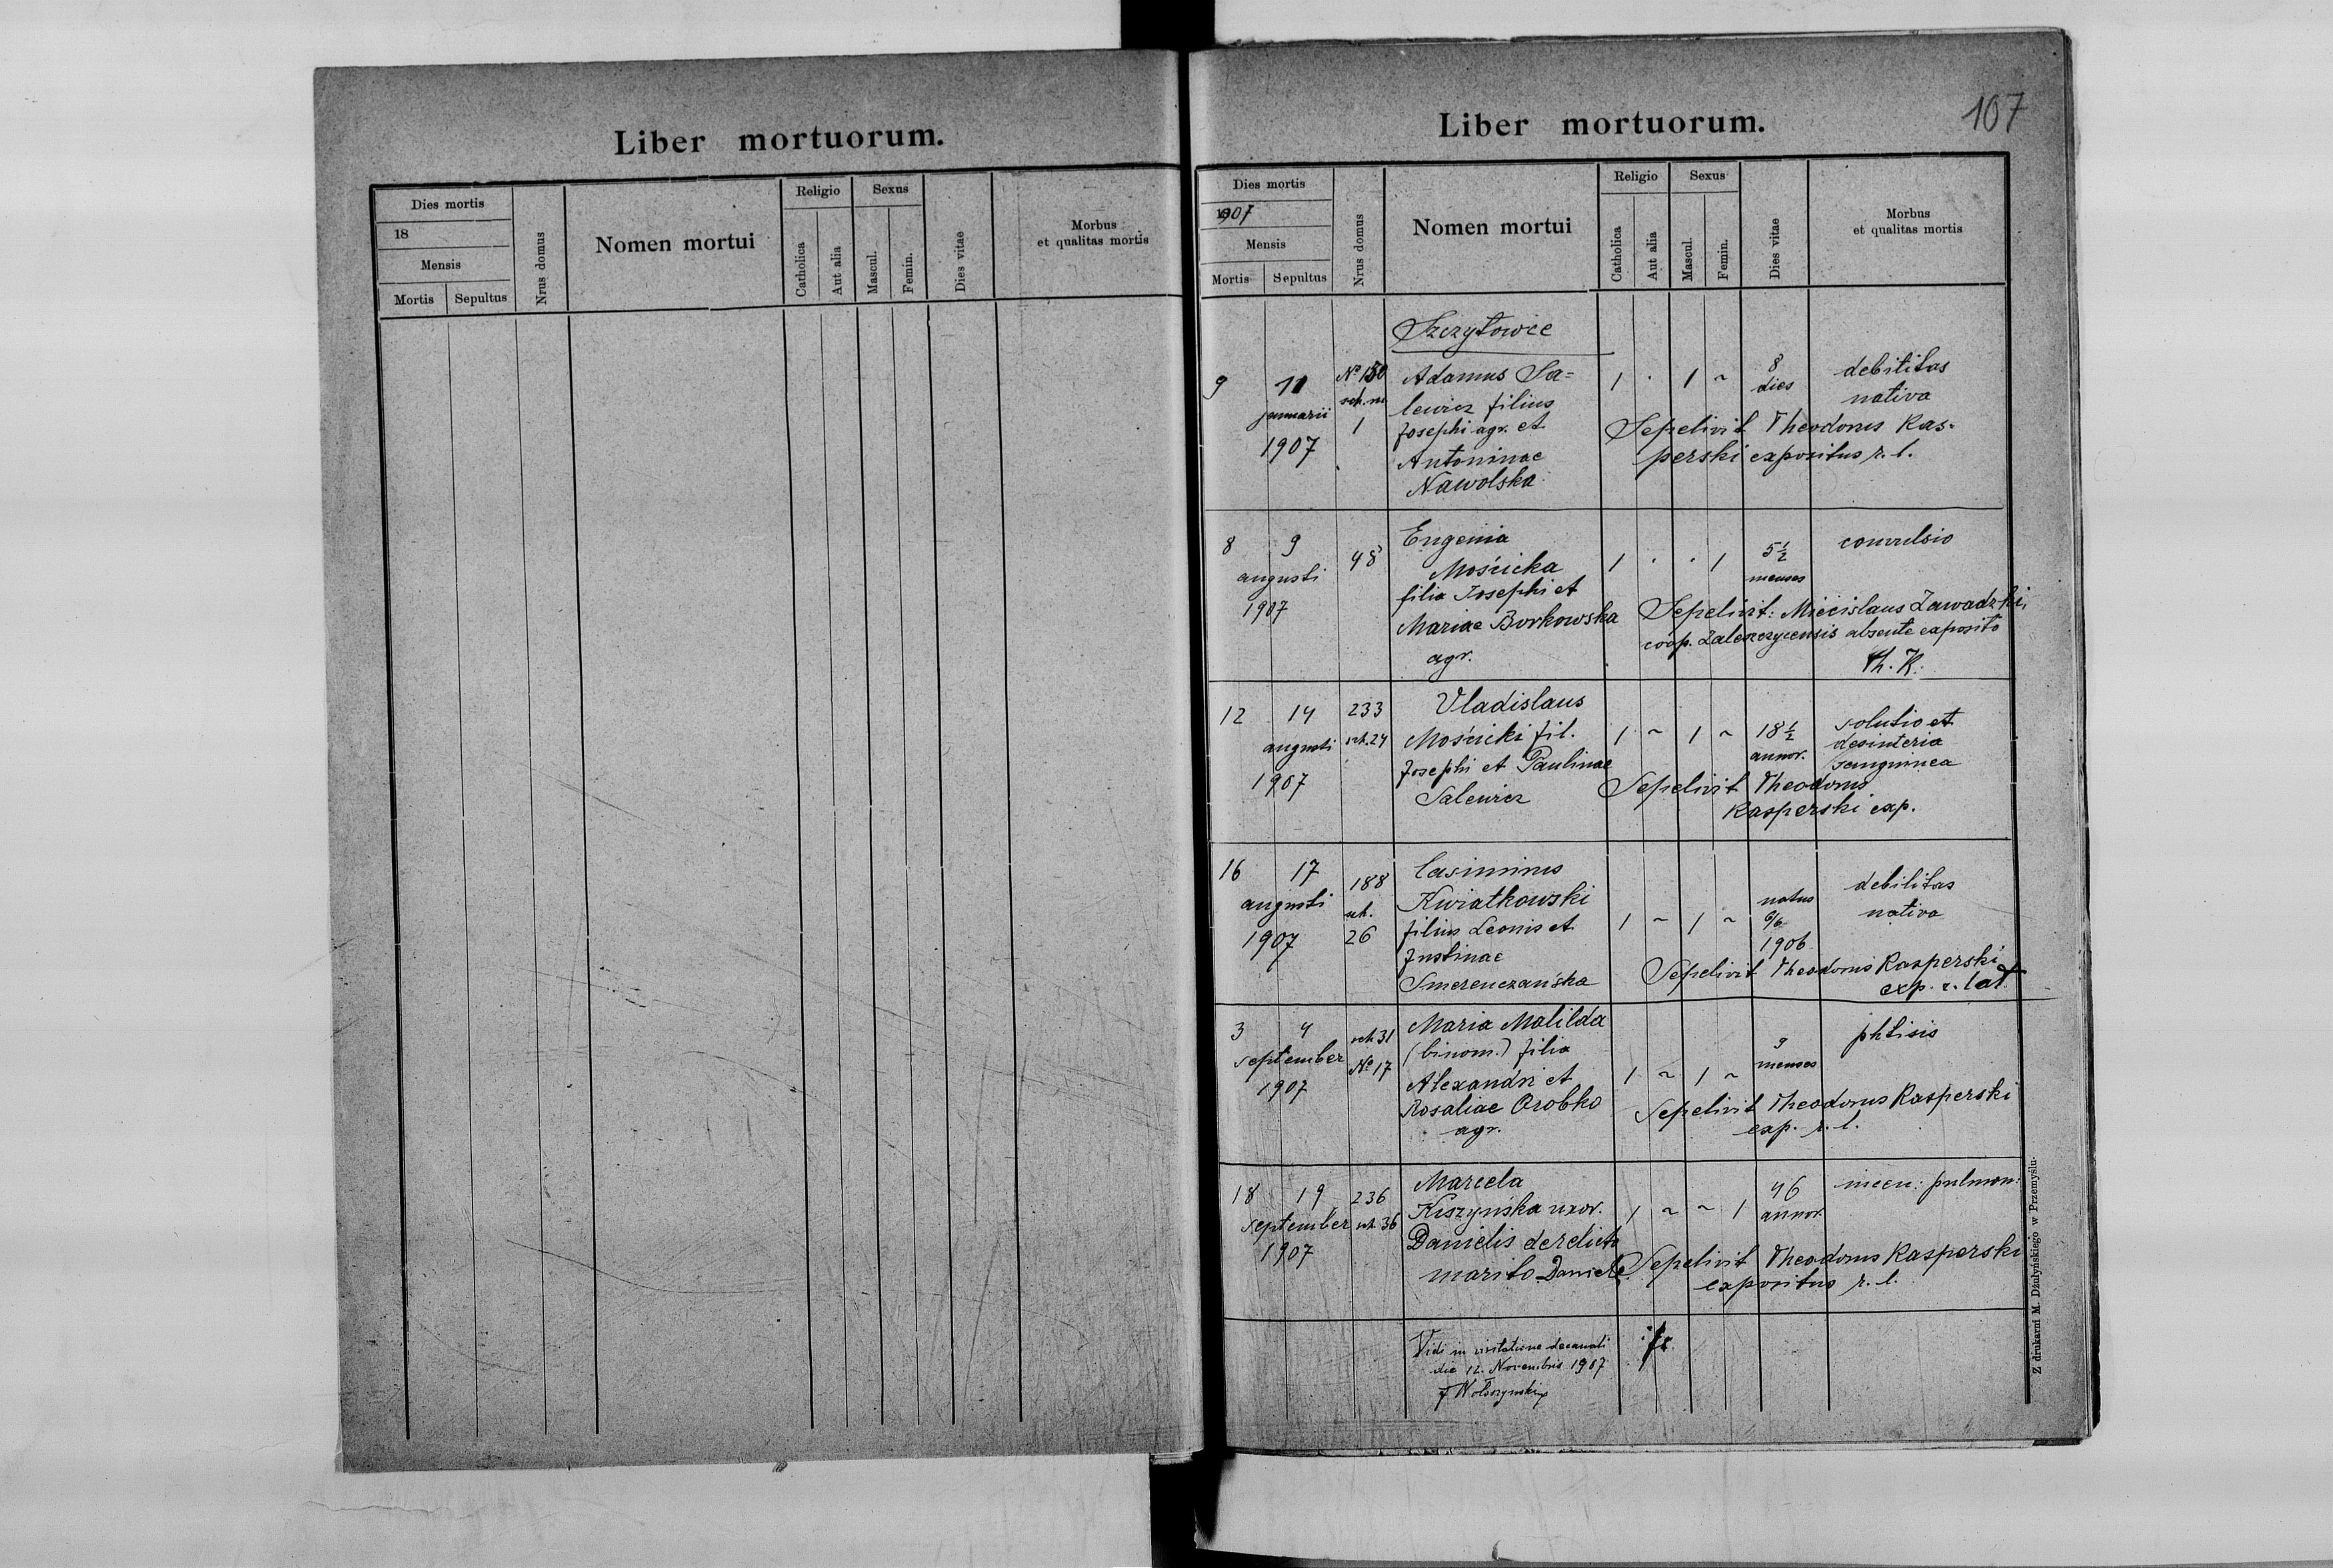 Liber mortuorum.
Dies mortis
18
Mensis
Mortis Sepultus
Nrus domus
Nomen mortui
Religio
Catholica
Aut alia
Sexus
Mascul.
Femin.
Dies vitae
Morbus
et qualitas mortis
107
Liber mortuorum.
Dies mortis
1907
Mensis
Mortis Sepultus
Nrus domus
Nomen mortui
Religio
Catholica
Aut alia
Sexus
Mascul.
Femin.
Dies vitae
Morbus
et qualitas mortis
Szczytowce
9 11
januarii
1907
Nº 150
1
Adamus Sa=
lewicz filius
Josephi agr. et
Antoninae
Nawolska
1 . 1 ~
8
dies
debilitas
nativa
Sepelivit Theodorus Kas-
perski expositus r. l.
8 9
augusti
1907
48
Eugenia
Mościcka
filia Josephi et
Mariae Borkowska
agr.
1 . . 1
5 1/2
menses
convulsio
Sepelivit: Miecislaus Zawadzki,
coop. Zaleszczycensis absente exposito
Th. K.
12 14
augusti
1907
233
sch. 24
Vladislaus
Mościcki fil.
Josephi et Paulinae
Salewicz
1 ~ 1 ~
18 1/2
annor.
solutio et
desinteria
sanguinea
Sepelivit Theodorus
Kasperski exp.
16 17
augusti
1907
188
sch.
26
Casimirus
Kwiatkowski
filius Leonis et
Justinae
Smerenczańska
1 ~ 1 ~
natus
6/6
1906
debilitas
nativa
Sepelivit Theodorus Kasperski
exp. r. lat
3 4
september
1907
sch 31
Nº 17
Maria Matilda
(binom.) filia
Alexandri et
Rosaliae Orobko
agr.
1 ~ 1 ~
menses
phtisis
Sepelivit Theodorus Kasperski
exp. r. l.
18 19
september
1907
236
sch. 36
Marcela
Kiszyńska uxor.
Danielis derelicto
marito Daniele
1 ~ ~ 1
46
annor.
pulmon:
Sepelivit Theodorus Kasperski
expositus r. l.
Vidi in visitatione decanali
die 12. Novembris 1907
Z drukarni M. Dżułyńskiego w Przemyślu.